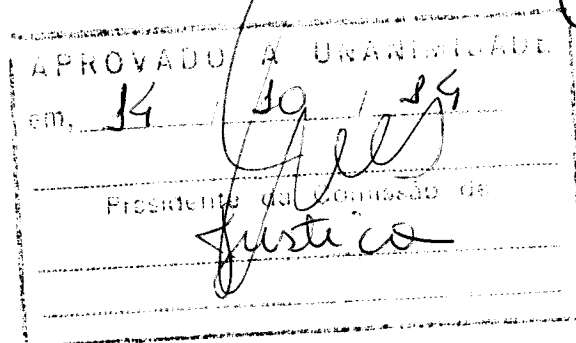 APROVADO A UNANIMIDADE
em, 14 / 10 / 14
Presidente da Comissão de
Justiça